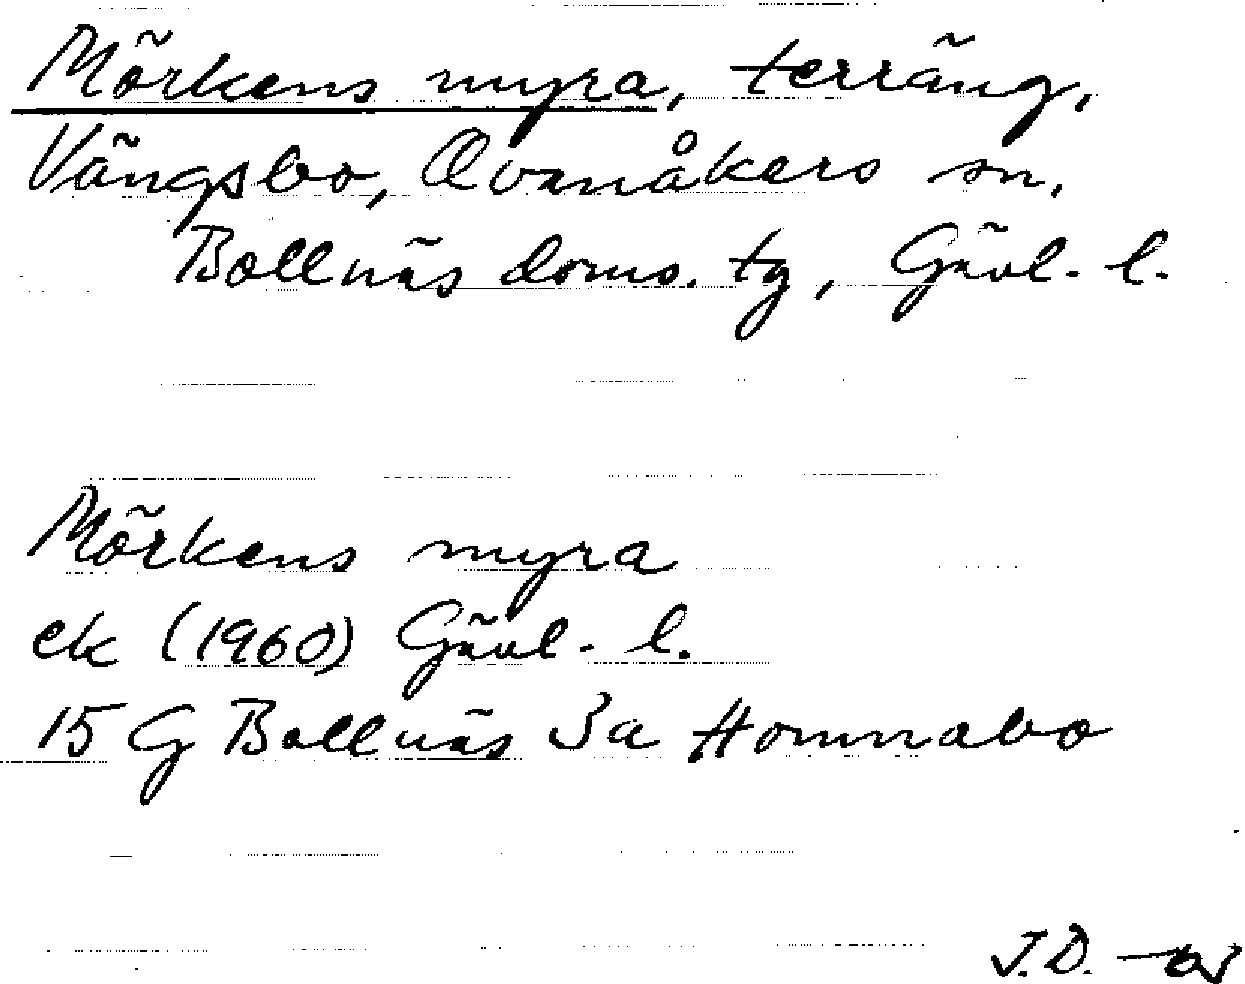 Mörkens myra, terräng,
Vängsbo, Ovanåkers sn,
Bollnäs doms. tg, Gävl. l.
Mörkens myra
ek (1960) Gävl. l.
15 G Bollnäs 3a Homnabo
J.D.